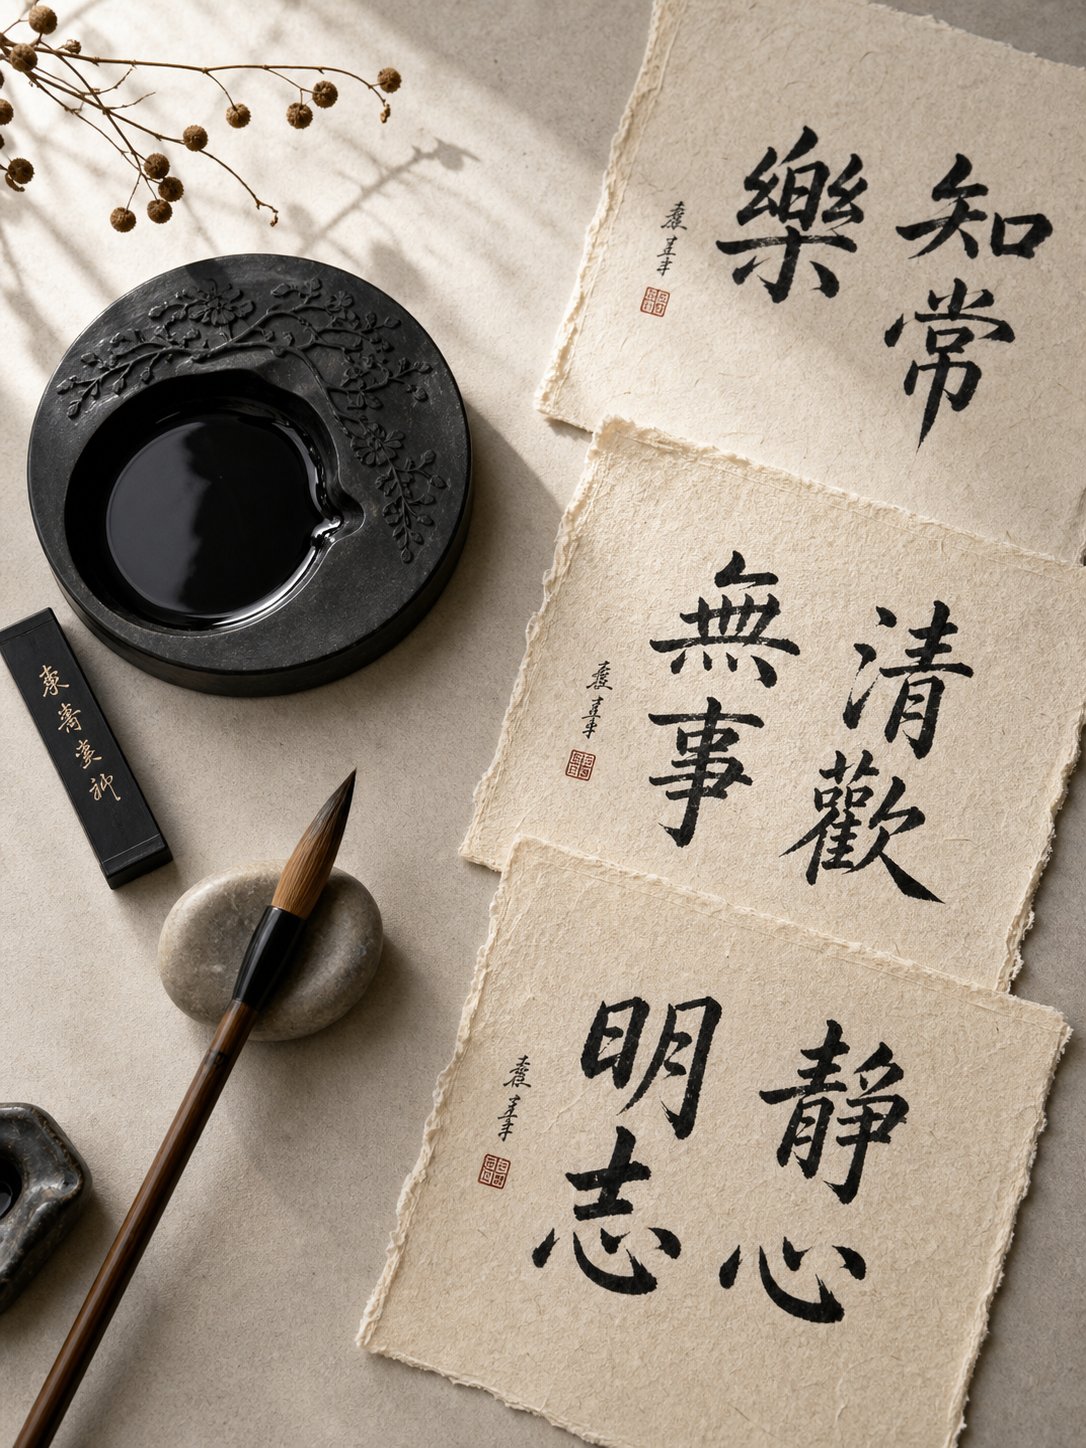 知常
樂
清歡
無事
靜心
明志